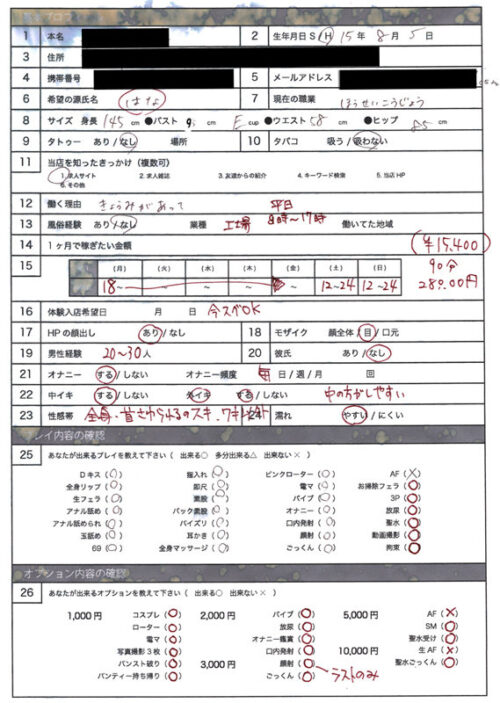 1 本名
2 生年月日 S H 15年 8月 5日
3 住所
4 携帯番号
5 メールアドレス
6 希望の源氏名 はな
7 現在の職業 ほうせいこうじょう
8 サイズ 身長 145 cm ●バスト cm E cup ●ウエスト 58 cm ●ヒップ 85 cm
9 タトゥー あり/なし 場所
10 タバコ 吸う/吸わない
11 当店を知ったきっかけ(複数可)
1.求人サイト 2.求人雑誌 3.友達からの紹介 4.キーワード検索 5.当店HP
6.その他
12 働く理由 きょうみがあって
平日
13 風俗経験 あり/なし 業種 工場 8時〜17時 働いてた地域
14 1ヶ月で稼ぎたい金額 (¥15,400)
90分
28000円
15 (月) (火) (水) (木) (金) (土) (日)
18〜 〜 〜 〜 〜 12〜24 12〜24
16 体験入店希望日 月 日 今スベOK
17 HPの顔出し あり/なし
18 モザイク 顔全体/目/口元
19 男性経験 20〜30人
20 彼氏 あり/なし
21 オナニー する/しない オナニー頻度 毎 日/週/月 回
22 中イキ する/しない 外イキ する/しない 中の方がしやすい
23 性感帯 全身・首さわられるのスキ、ワキ
24 濡れ やすい/にくい
プレイ内容の確認
25 あなたが出来るプレイを教えて下さい(出来る○ 多分出来る△ 出来ない×)
Dキス(○) 指入れ(○) ピンクローター(○) AF(×)
全身リップ(○) 即尺(○) 電マ(○) お掃除フェラ(○)
生フェラ(○) 素股(○) バイブ(○) 3P(○)
アナル舐め(○) バック素股(○) オナニー(○) 放尿(○)
アナル舐められ(○) パイズリ(○) 口内発射(○) 聖水(○)
玉舐め(○) 耳かき(○) 顔射(○) 動画撮影(○)
69(○) 全身マッサージ(○) ごっくん(○) 拘束(○)
オプション内容の確認
26 あなたが出来るオプションを教えて下さい(出来る○ 出来ない×)
1,000円 コスプレ(○) 2,000円 バイブ(○) 5,000円 AF(×)
ローター(○) 放尿(○) SM(○)
電マ(○) オナニー鑑賞(○) 聖水受け(○)
写真撮影3枚(○) 口内発射(○) 10,000円 生AF(×)
パンスト破り(○) 3,000円 顔射(○) 聖水ごっくん(○)
パンティー持ち帰り(○) ごっくん(○) ラストのみ